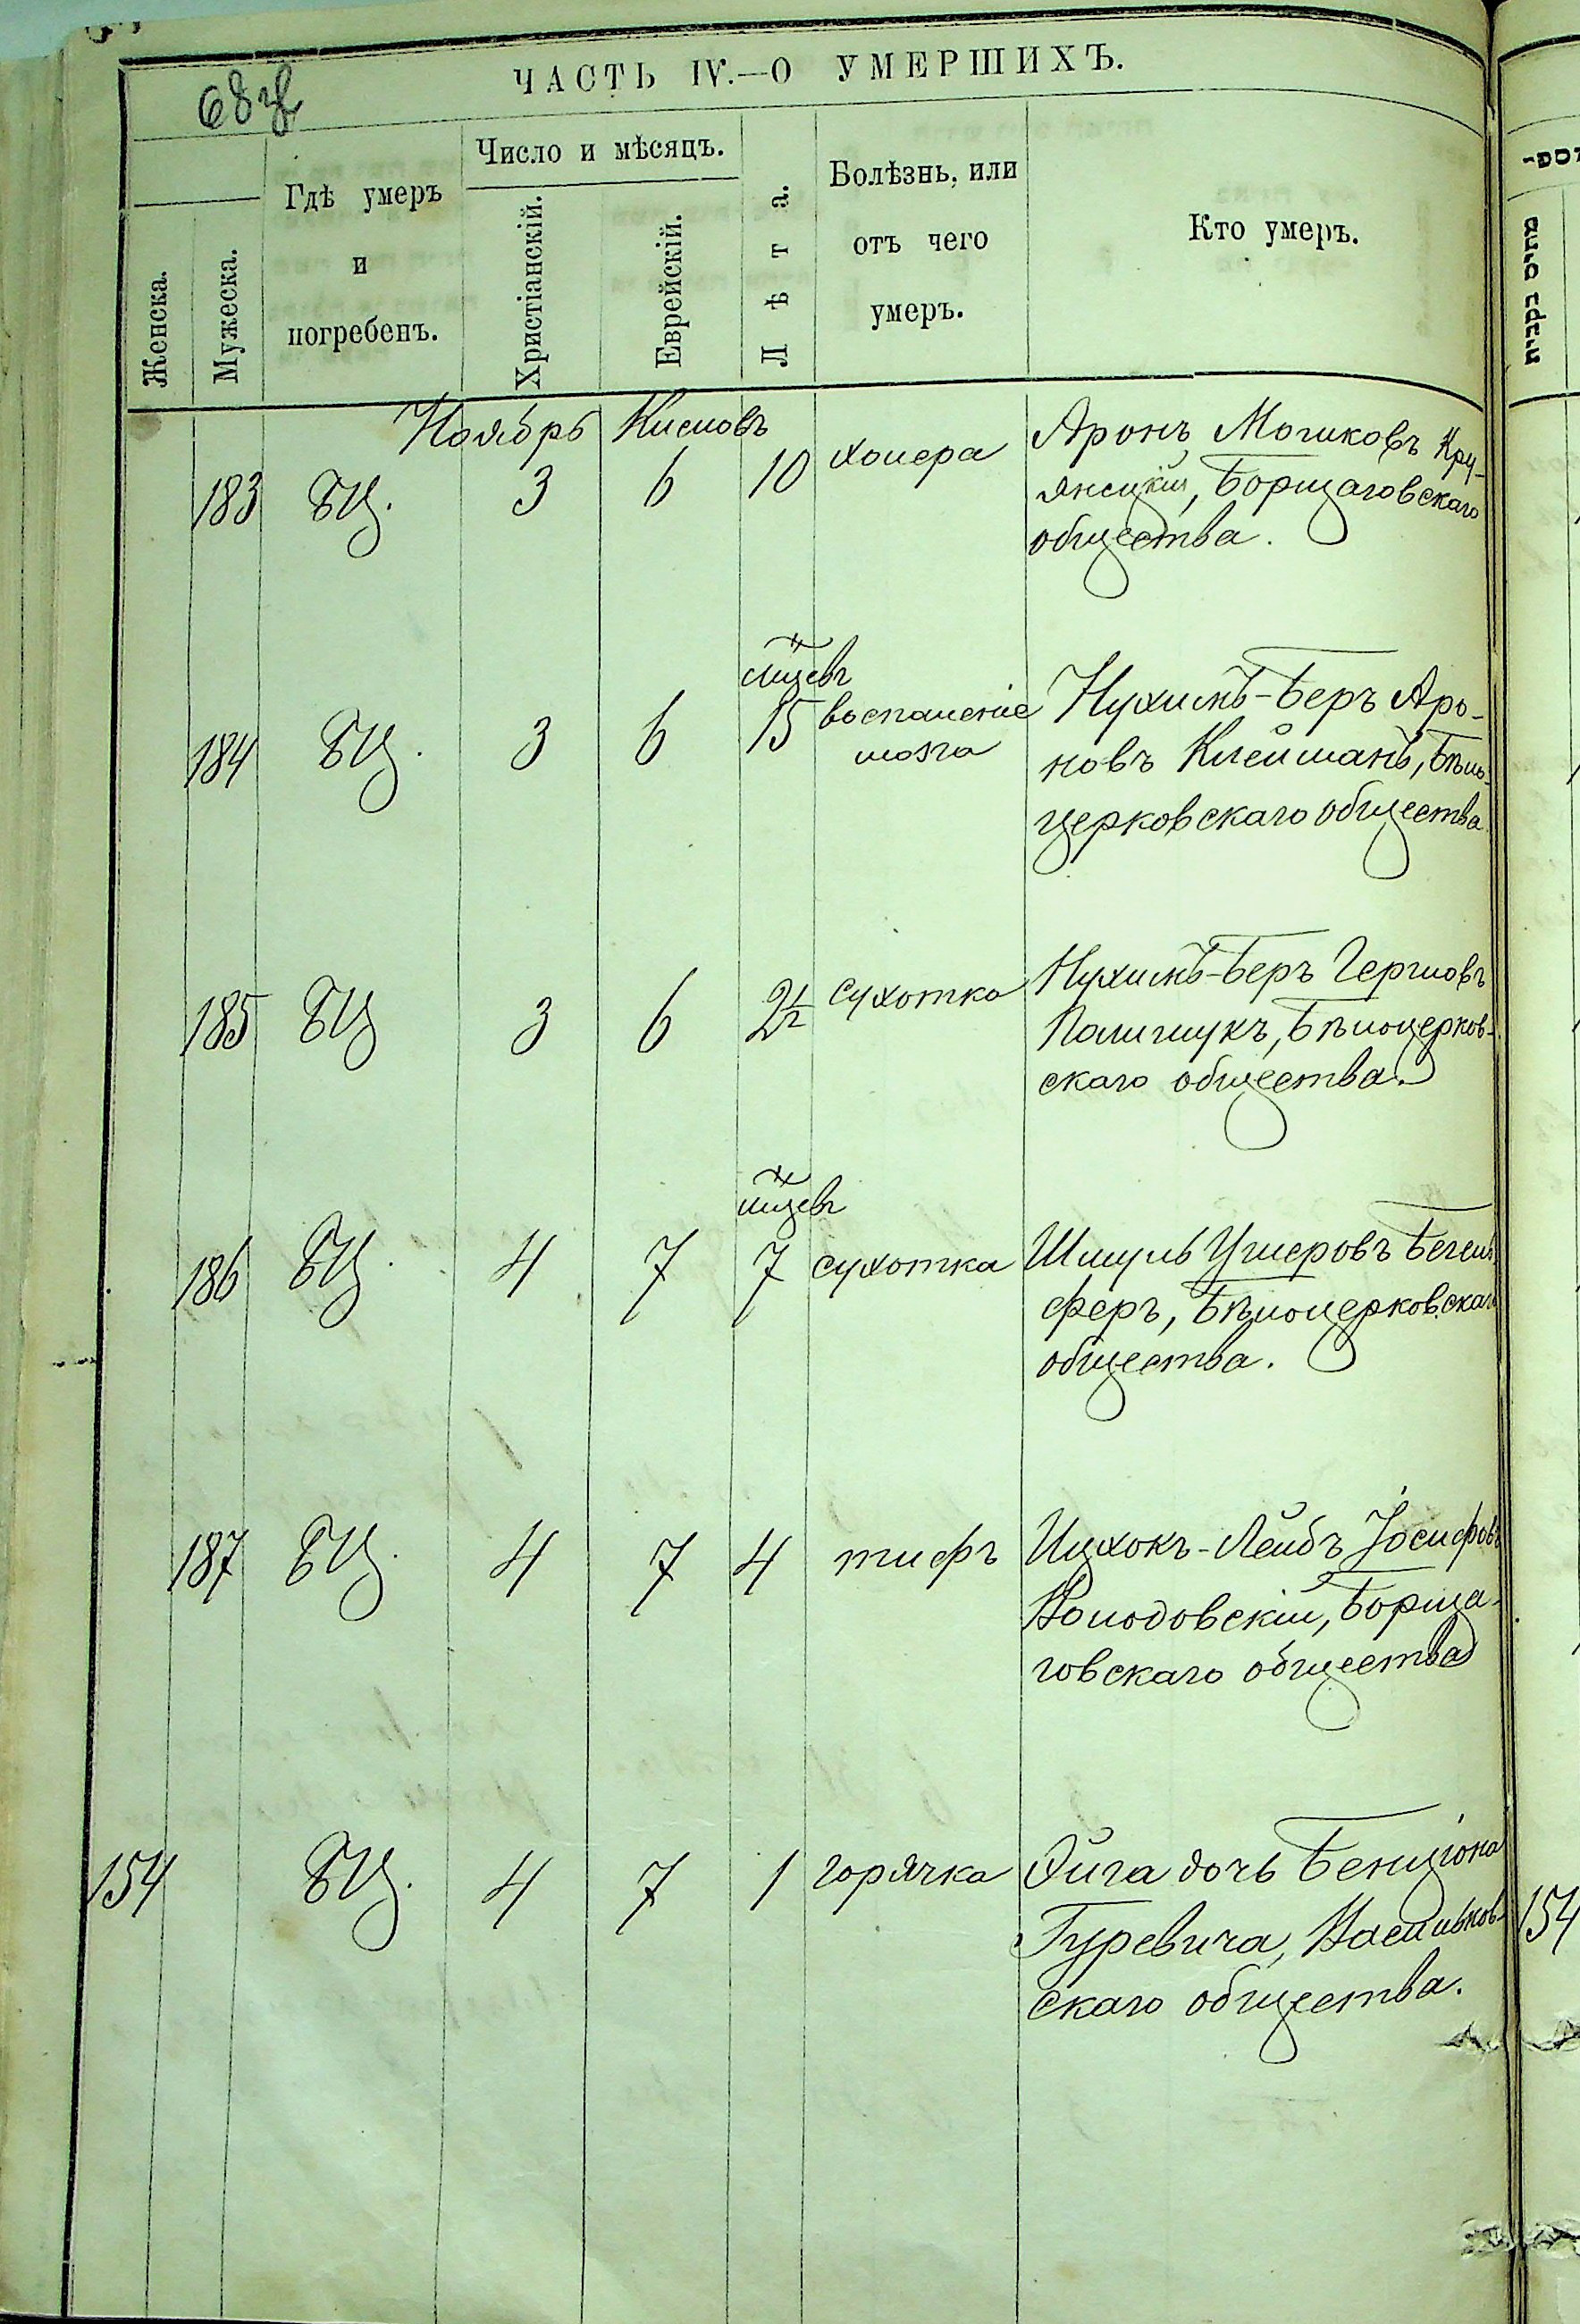 ЧАСТЬ IV.—О УМЕРШИХЪ.
Женска.
Мужеска.
Гдѣ умеръ
и
погребенъ.
Число и мѣсяцъ.
Христіанскій.
Еврейскій.
Лѣта.
Болѣзнь, или
отъ чего
умеръ.
Кто умеръ.
Ноябрь Кислевъ
183 БЦ. 3 6 10 холера Аронъ Мошковъ Кру-
янскій, Борщаговскаго
общества.
мцевъ
184 БЦ. 3 6 15 воспаленіе Нухимъ-Беръ Аро-
мозга новъ Клейманъ, Бѣло-
церковскаго общества
185 БЦ 3 6 2½ сухотка Нухимъ-Беръ Гершовъ
Полищукъ, Бѣлоцерков-
скаго общества.
мцевъ
186 БЦ. 4 7 7 сухотка Шмуль Ушеровъ
феръ, Бѣлоцерковскаго
общества.
187 БЦ. 4 7 4 тифъ Ицхокъ-Лейбъ Іосифовъ
Володовскій, Борща-
говскаго общества
154 БЦ. 4 7 1 горячка дочь Бенціона
Гуревича, Васильков-
скаго общества.
154